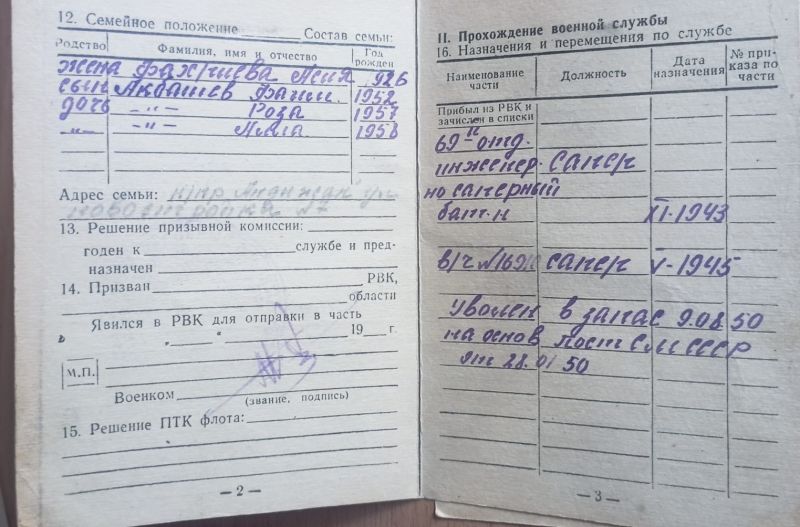 12. Семейное положение Состав семьи:
Родство Фамилия, имя и отчество Год рожден
жена Фахриева 1926
сын Акбашев 1952
дочь -„- Роза 1957
-„- -„- 1958
Адрес семьи:
13. Решение призывной комиссии:
годен к службе и пред-
назначен
14. Призван РВК,
области
Явился в РВК для отправки в часть
„ “ 19 г.
М.П.
Военком
(звание, подпись)
15. Решение ПТК флота:
— 2 —
II. Прохождение военной службы
16. Назначения и перемещения по службе
Наименование части Должность Дата назначения № при-каза по части
Прибыл из РВК и
зачислен в списки
69 отд.
инженер- сапер
но саперный
бат-н XI-1943
в/ч сапер V-1945
Уволен в запас 9.08 50
на основ пост СМ СССР
от 28.01 50
— 3 —